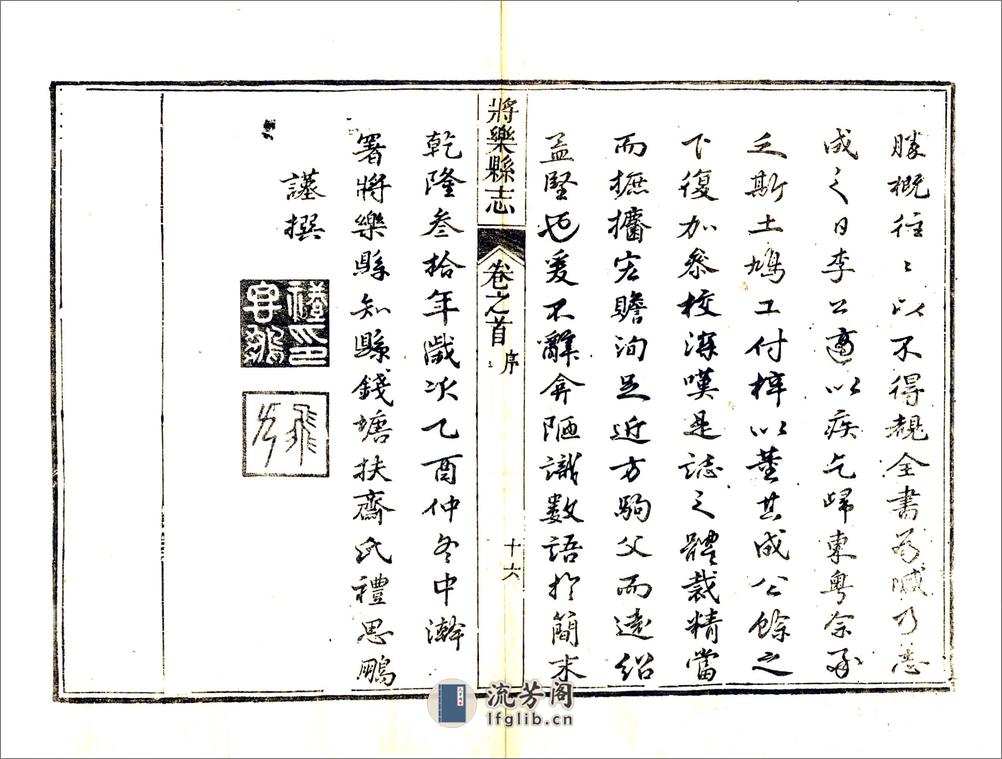 勝概往〻以不得覩全書為憾乃志
成之日李公適以疾乞歸東粵余承
乏斯土鳩工付梓以董其成公餘之
下復加叅校深嘆是誌之體裁精當
而摭攟宏贍洵足近方駒父而遠紹
孟堅也爰不辭弇陋識數語於簡末
將樂縣志
卷之首
序
十六
乾隆叁拾年歲次乙酉仲冬中澣
署將樂縣知縣錢塘扶齋氏禮思鵬
謹撰
流芳阁
lfglib.cn